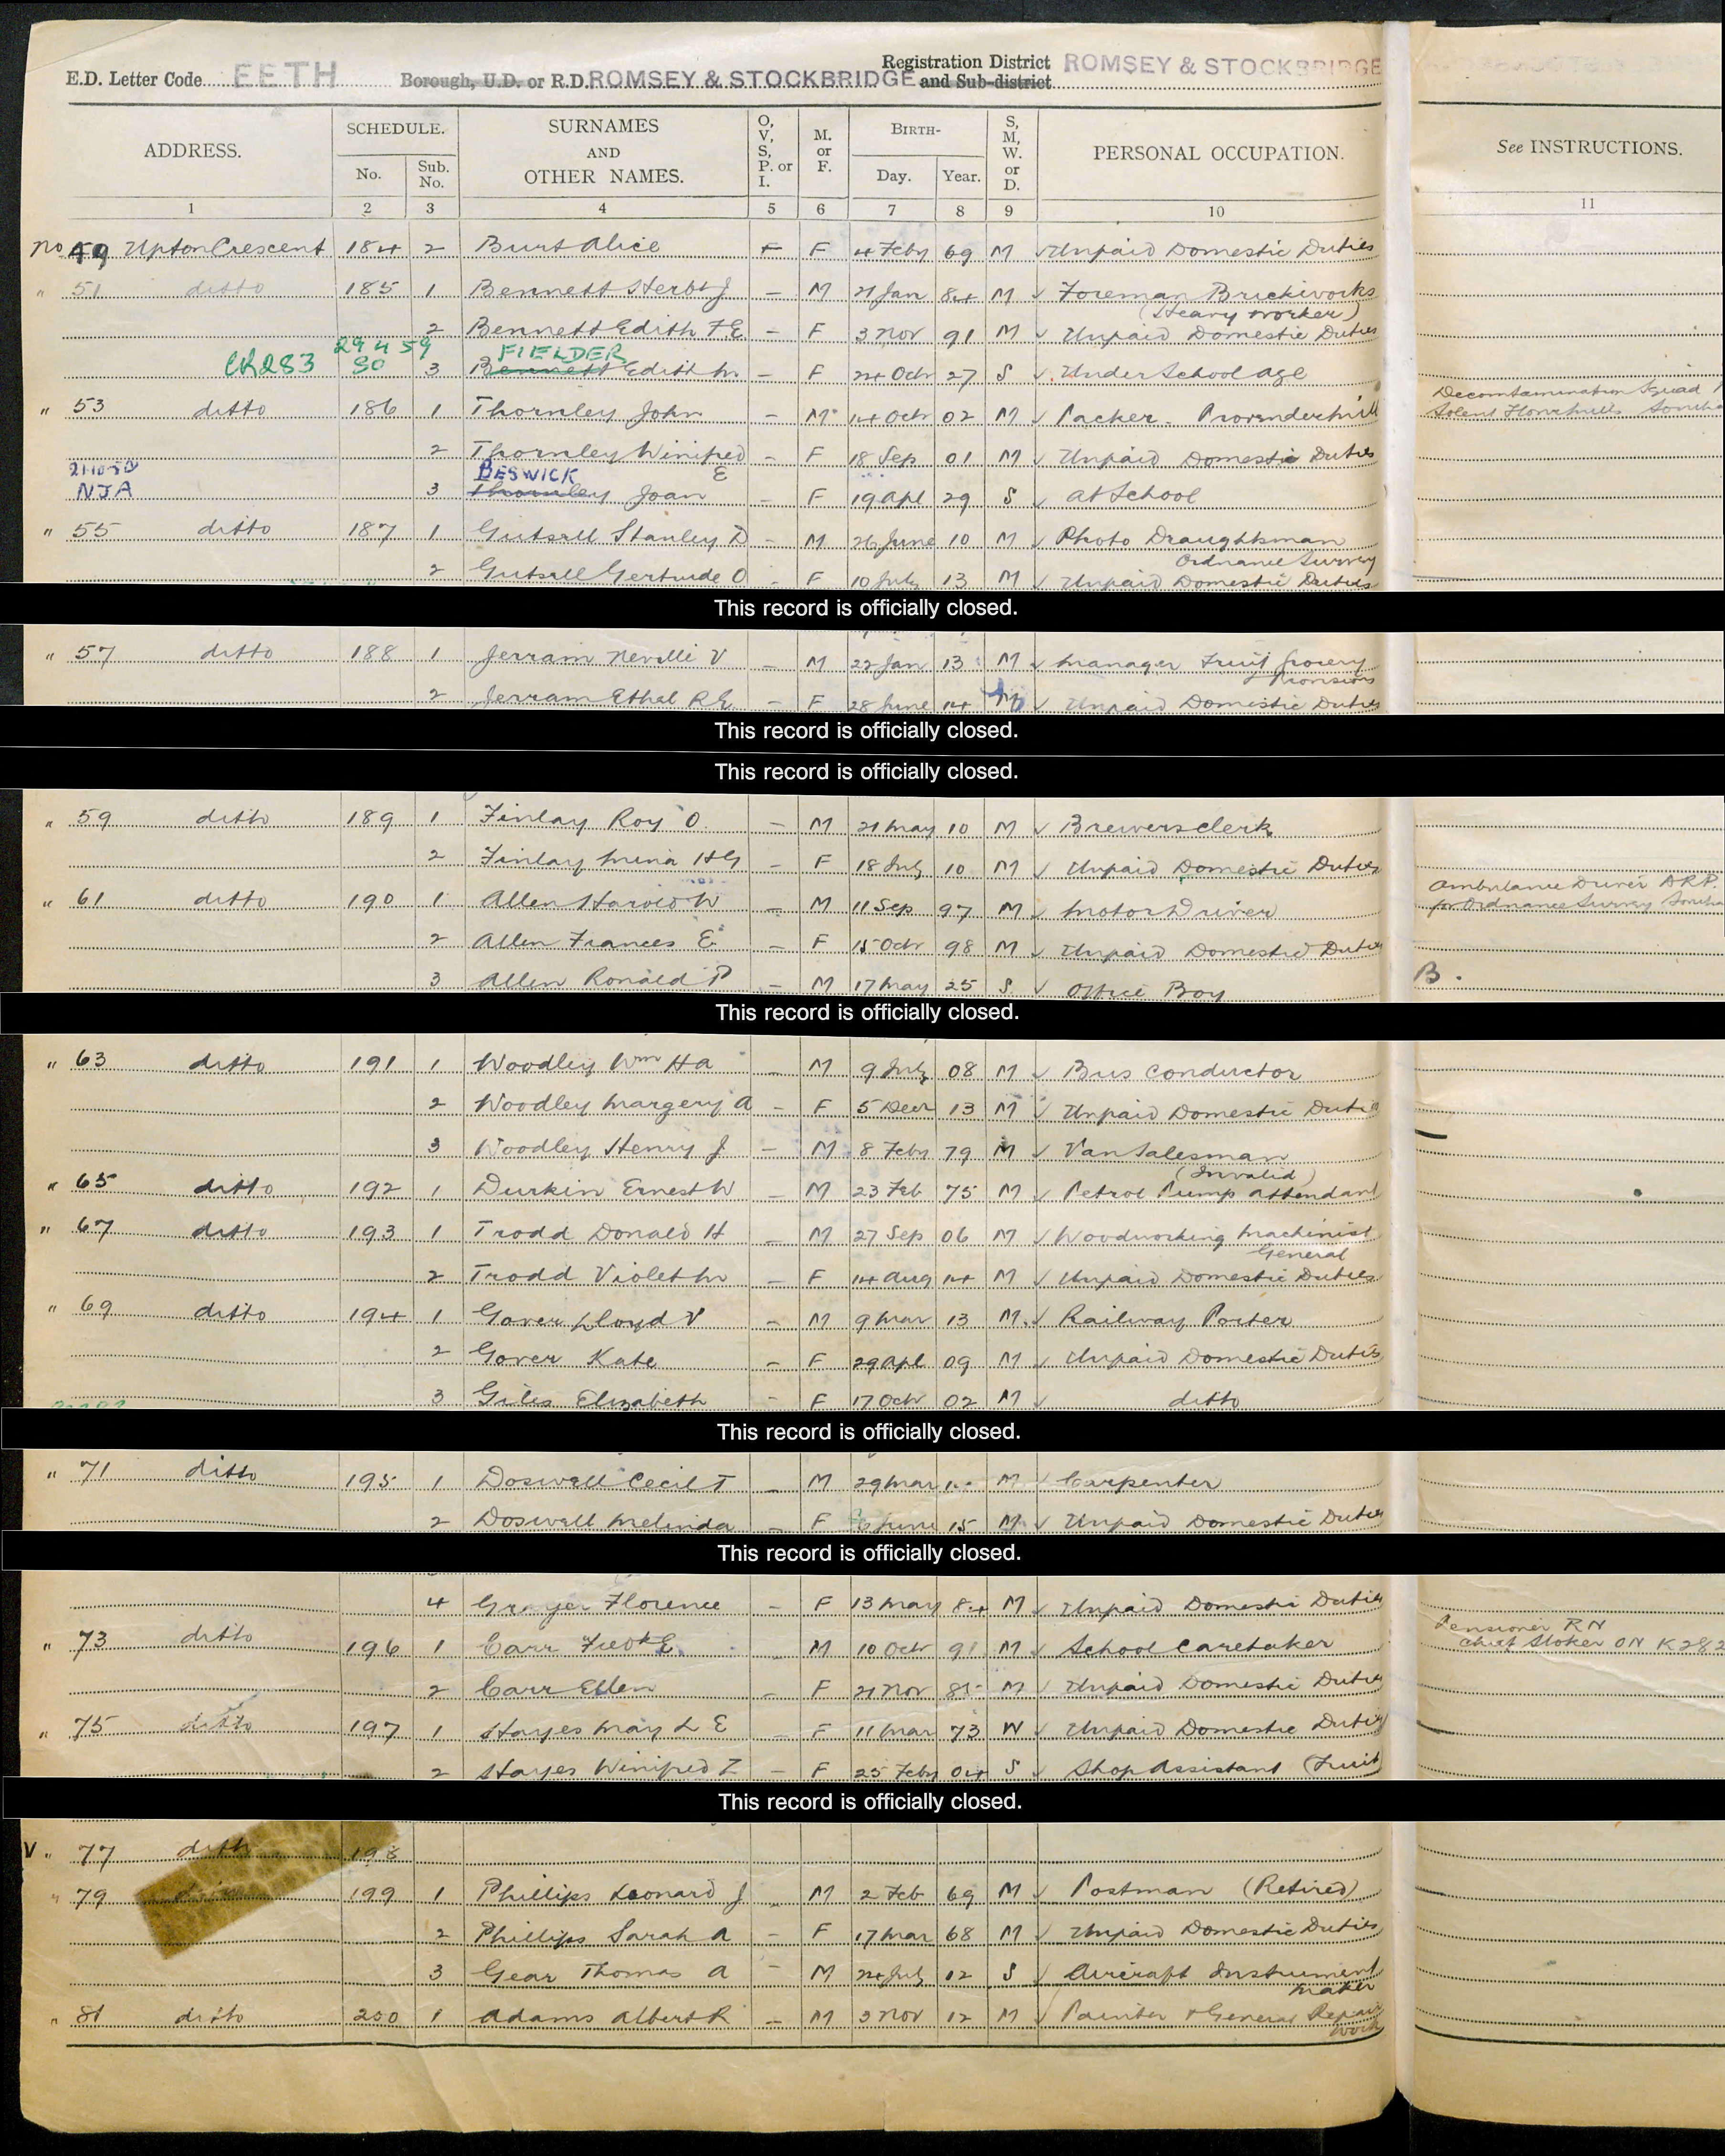 Registration District ROMSEY & STOCKBRIDGE
E.D. Letter Code EETH Borough, U.D. or R.D. ROMSEY & STOCKBRIDGE and Sub-district
ADDRESS. SCHEDULE. No. Sub. No. SURNAMES AND OTHER NAMES. O, V, S, P. or I. M. or F. BIRTH- Day. Year. S, M, W. or D. PERSONAL OCCUPATION. See INSTRUCTIONS.
1 2 3 4 5 6 7 8 9 10 11
No 49 Upton Crescent 184 2 Burt Alice F 4 Feby 69 M Unpaid Domestic Duties
" 51 ditto 185 1 Bennett Herbt J — M 21 Jan 84 M Foreman Brickworks
(Heavy Worker)
2 Bennett Edith F.E. — F 3 Nov 91 M Unpaid Domestic Duties
29 4 59 FIELDER
CR283 SO 3 Bennett Edith M. — F 24 Octr 27 S Under School age
" 53 ditto 186 1 Thornley John — M 14 Octr 02 M Packer. Provender Mill Decontamination Squad
Solent Flourmills
2 Thornley Winifred E — F 18 Sep 01 M Unpaid Domestic Duties
21-10-50 BESWICK
NJA 3 Thornley Joan — F 19 Apl 29 S at School
" 55 ditto 187 1 Gutsell Stanley D — M 26 June 10 M Photo Draughtsman
Ordnance Survey
2 Gutsell Gertrude O — F 10 July 13 M Unpaid Domestic Duties
This record is officially closed.
" 57 ditto 188 1 Jerram Neville V — M 22 Jan 13 M Manager Fruit Grocery
Provisions
2 Jerram Ethel R.E. — F 28 June 14 M Unpaid Domestic Duties
This record is officially closed.
This record is officially closed.
" 59 ditto 189 1 Finlay Roy O. — M 21 May 10 M Brewers clerk
2 Finlay Mena H G — F 18 July 10 M Unpaid Domestic Duties
" 61 ditto 190 1 Allen Harold W — M 11 Sep 97 M Motor Driver Ambulance Driver A.R.P.
for Ordnance Survey
2 Allen Frances E — F 15 Octr 98 M Unpaid Domestic Duties
3 Allen Ronald P — M 17 May 25 S. Office Boy B.
This record is officially closed.
" 63 ditto 191 1 Woodley Wm H A — M 9 July 08 M Bus Conductor
2 Woodley Margery A — F 5 Decr 13 M Unpaid Domestic Duties
3 Woodley Henry J — M 8 Feby 79 M Van Salesman
(Invalid)
" 65 ditto 192 1 Durkin Ernest W — M 23 Feb 75 M Petrol Pump Attendant
" 67 ditto 193 1 Trodd Donald H — M 27 Sep 06 M Woodworking Machinist
General
2 Trodd Violet M — F 14 Aug 14 M Unpaid Domestic Duties
" 69 ditto 194 1 Gover Lloyd V — M 9 Mar 13 M. Railway Porter
2 Gover Kate — F 29 Apl 09 M Unpaid Domestic Duties
3 Giles Elizabeth — F 17 Octr 02 M ditto
This record is officially closed.
" 71 ditto 195 1 Doswell Cecil T — M 29 Mar M Carpenter
2 Doswell Melinda — F 6 June 15 M Unpaid Domestic Duties
This record is officially closed.
4 Florence — F 13 May 84 M Unpaid Domestic Duties
" 73 ditto 196 1 Carr Fredk E. M 10 Octr 91 M School Caretaker Pensioner RN
Chief Stoker ON K282
2 Carr Ellen — F 21 Nov 85 M Unpaid Domestic Duties
" 75 ditto 197 1 Hayes May L E F 11 Mar 73 W Unpaid Domestic Duties
2 Hayes Winifred I — F 25 Feby 04 S Shop Assistant (Fruit
This record is officially closed.
V " 77 ditto 198
" 79 ditto 199 1 Phillips Leonard J M 2 Feb 69 M Postman (Retired)
2 Phillips Sarah A — F 17 Mar 68 M Unpaid Domestic Duties
3 Gear Thomas A — M 24 July 12 S Aircraft Instrument
Maker
" 81 ditto 200 1 Adams Albert R — M 3 Nov 12 M Painter & General Repair
Work